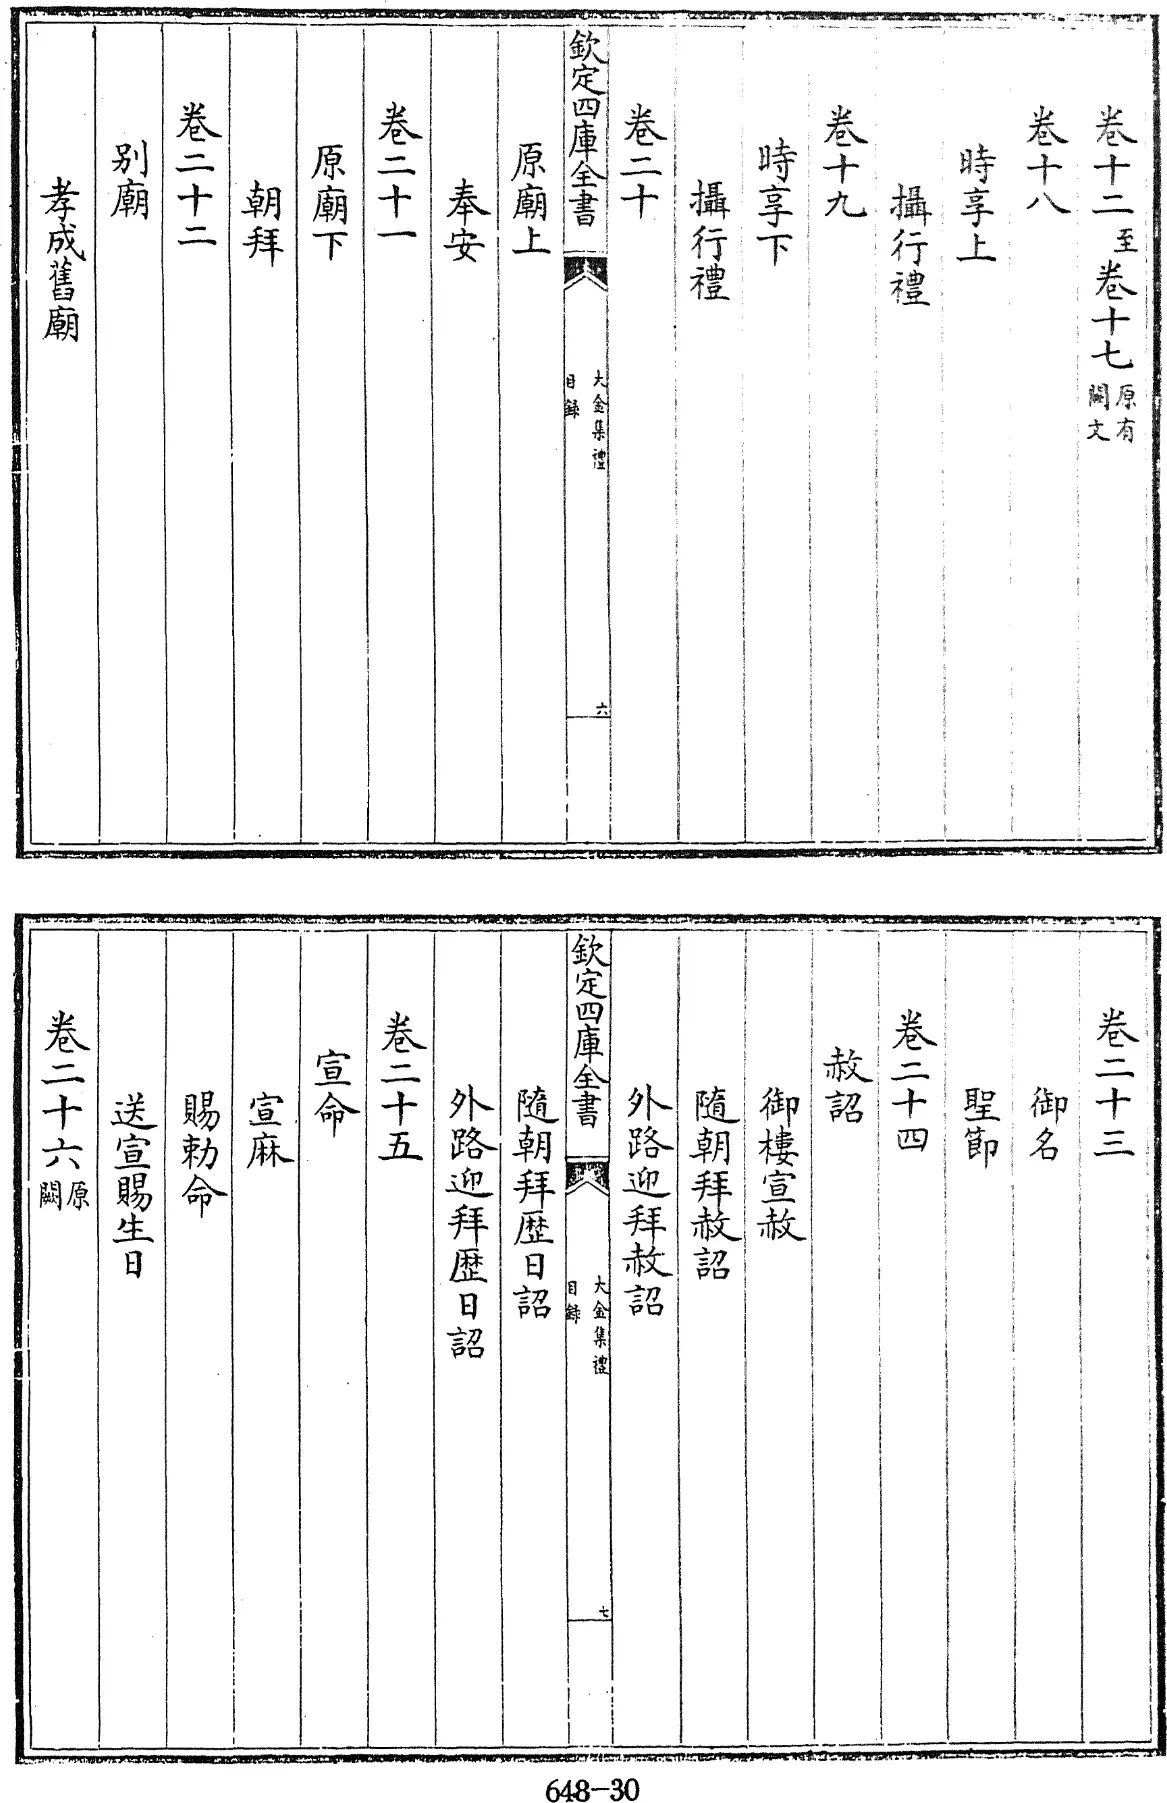 卷十二至卷十七原有闕文
卷十八
時享上
攝行禮
卷十九
時享下
攝行禮
卷二十
欽定四庫全書
大金集禮
目錄
六
原廟上
奉安
卷二十一
原廟下
朝拜
卷二十二
别廟
孝成舊廟
卷二十三
御名
聖節
卷二十四
赦詔
御樓宣赦
隨朝拜赦詔
外路迎拜赦詔
欽定四庫全書
大金集禮
目錄
七
隨朝拜歴日詔
外路迎拜歴日詔
卷二十五
宣命
宣麻
賜勅命
送宣賜生日
卷二十六原闕
648-30